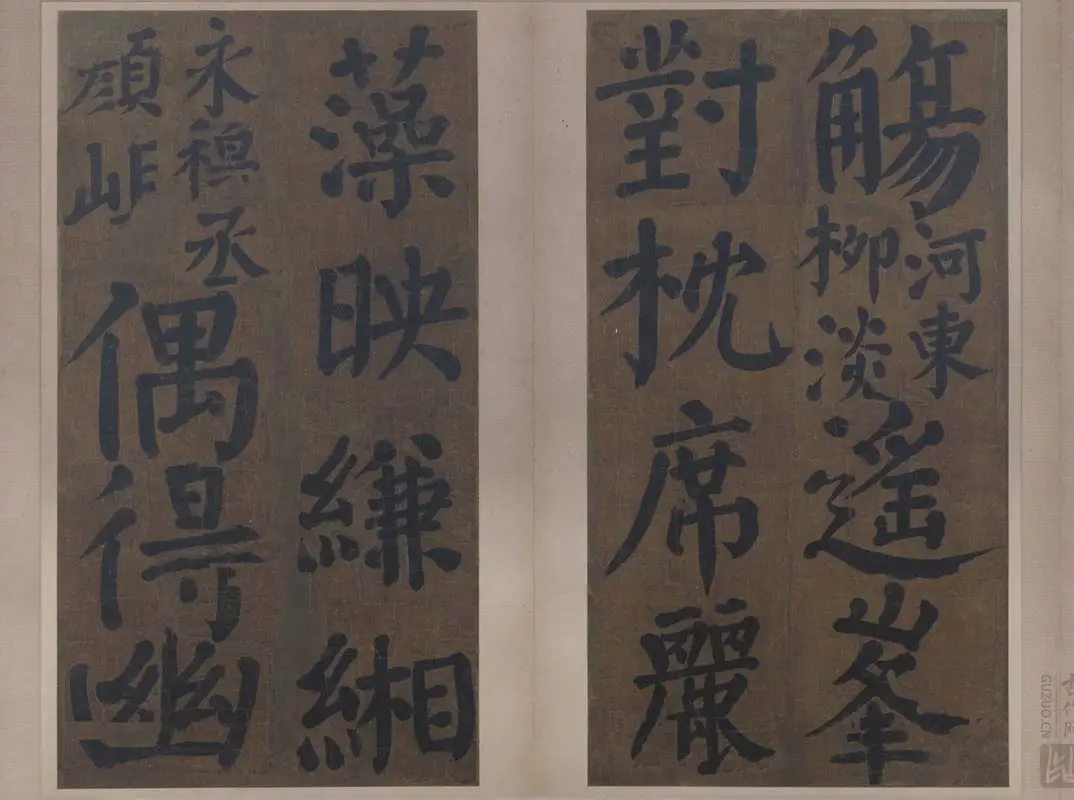 觴
河東
柳淡
遙峯
對枕席麗
藻映縑緗
永穆丞
顔
偶得幽
GUZUO.CN